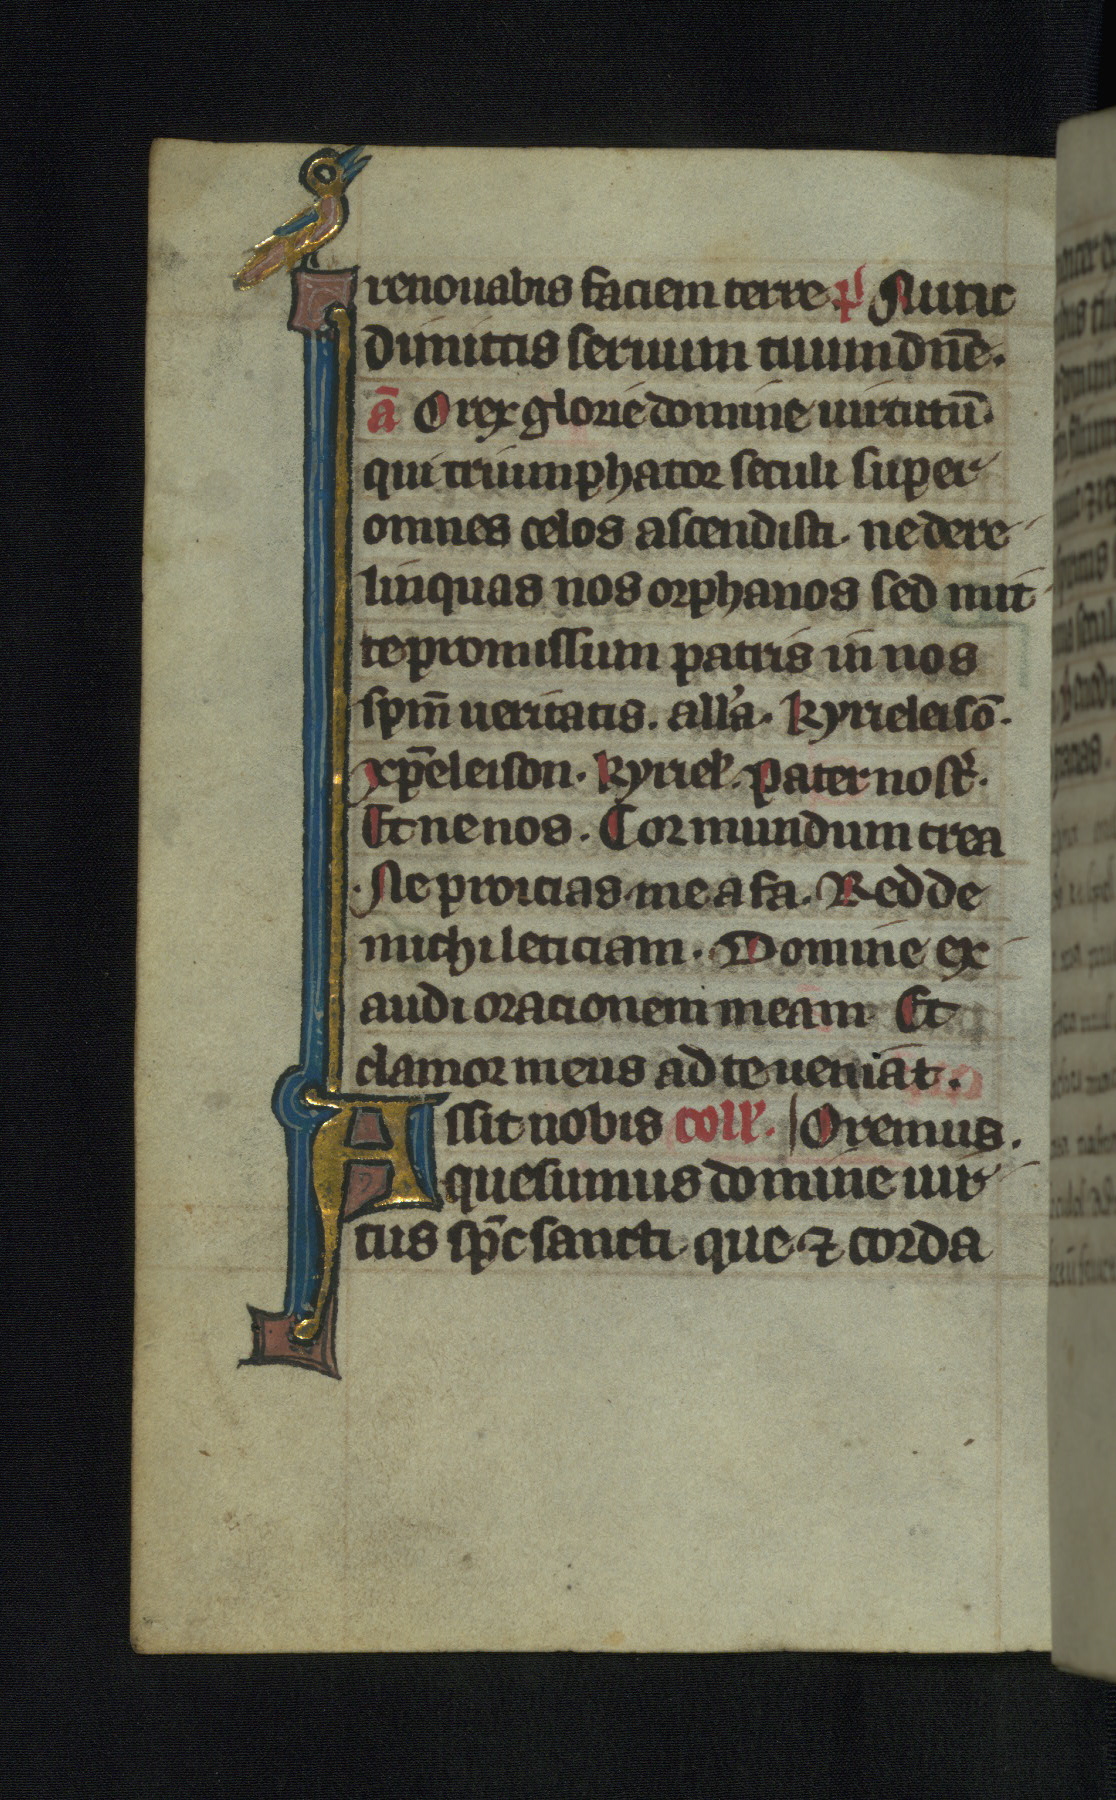 renouabis faciem terre p̄s Nunc
dimittis seruum tuum dn̄e.
ā O rex glorie domine uirtutū.
qui triumphator seculi super
omnes celos ascendisti. ne dere
linquas nos orphanos sed mit
te promissum patris in nos
spm̄ ueritatis. all'a. kyrieleisō.
xp̄eleison. kyriel'. pater nost'.
Et ne nos. Cor mundum crea
.Ne proicias me a fa. Redde
michi leticiam. Domine ex
audi orationem meam Et
clamor meus ad te ueniat.
Assit nobis coll'. Oremus.
quesumus domine uir
tus sp̄c sancti que ⁊ corda